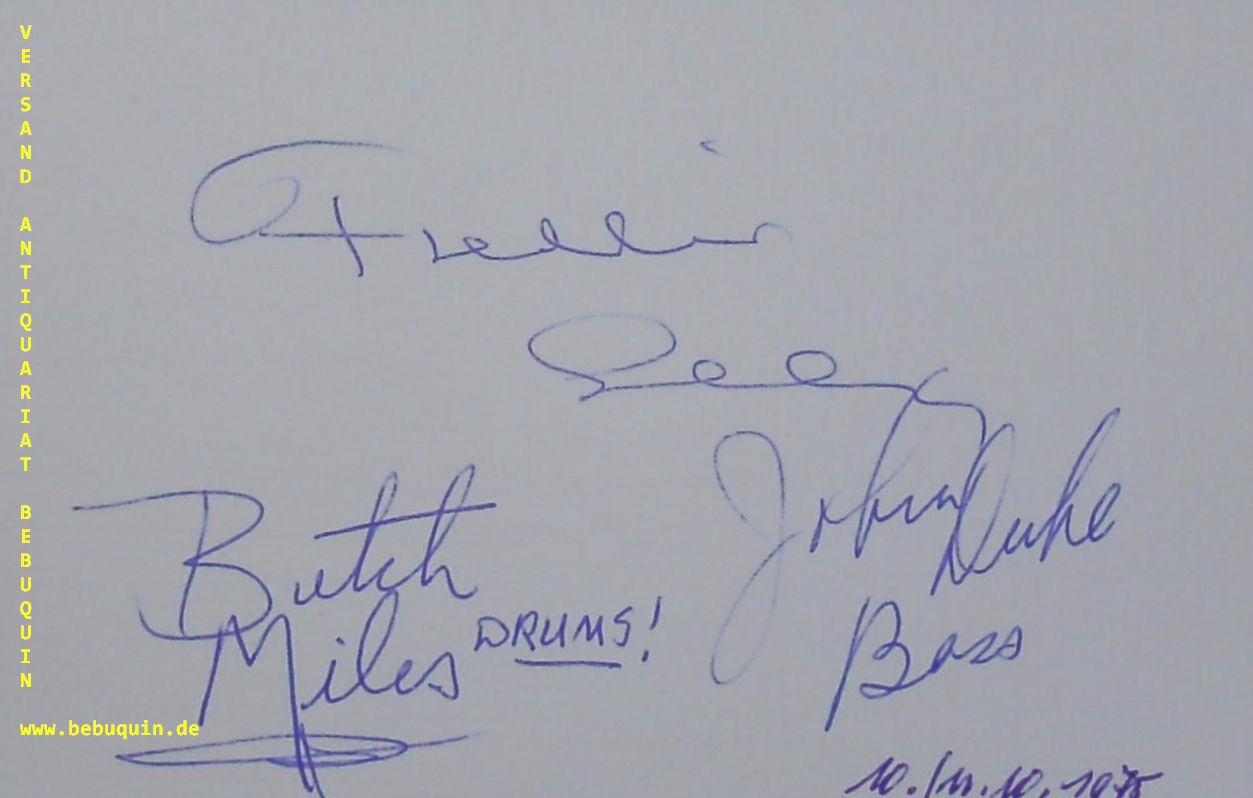 VERSAND ANTIQUARIAT BEBUQUIN
Freddie
Butch
John Duke
Miles
DRUMS!
Bass
www.bebuquin.de
10./11.10.1975